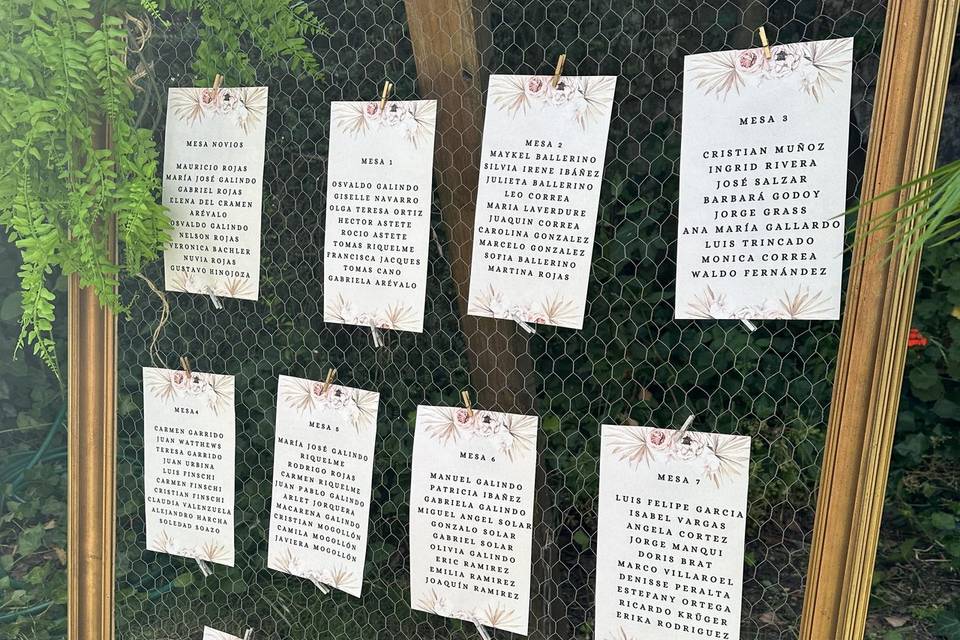 MESA NOVIOS
MAURICIO ROJAS
MARÍA JOSÉ GALINDO
GABRIEL ROJAS
ELENA DEL CRAMEN
ARÉVALO
OSVALDO GALINDO
NELSON ROJAS
VERONICA BACHLER
NUVIA ROJAS
GUSTAVO HINOJOZA
MESA 1
OSVALDO GALINDO
GISELLE NAVARRO
OLGA TERESA ORTIZ
HECTOR ASTETE
ROCIO ASTETE
TOMAS RIQUELME
FRANCISCA JACQUES
TOMAS CANO
GABRIELA ARÉVALO
MESA 2
MAYKEL BALLERINO
SILVIA IRENE IBÁÑEZ
JULIETA BALLERINO
LEO CORREA
MARIA LAVERDURE
JUAQUIN CORREA
CAROLINA GONZALEZ
MARCELO GONZALEZ
SOFIA BALLERINO
MARTINA ROJAS
MESA 3
CRISTIAN MUÑOZ
INGRID RIVERA
JOSÉ SALZAR
BARBARÁ GODOY
JORGE GRASS
ANA MARÍA GALLARDO
LUIS TRINCADO
MONICA CORREA
WALDO FERNÁNDEZ
MESA4
CARMEN GARRIDO
JUAN WATTHEWS
TERESA GARRIDO
JUAN URBINA
LUIS FINSCHI
CARMEN FINSCHI
CRISTIAN FINSCHI
CLAUDIA VALENZUELA
ALEJANDRO HARCHA
SOLEDAD SGAZO
MESA 5
MARÍA JOSÉ GALINDO
RIQUELME
RODRIGO ROJAS
CARMEN RIQUELME
JUAN PABLO GALINDO
ARLET JORQUERA
MACARENA GALINDO
CRISTIAN MOGOLLÓN
CAMILA MOGOLLÓN
JAVIERA MOGOLLÓN
MESA 6
MANUEL GALINDO
PATRICIA IBAÑEZ
GABRIELA GALINDO
MIGUEL ANGEL SOLAR
GONZALO SOLAR
GABRIEL SOLAR
OLIVIA GALINDO
ERIC RAMIREZ
EMILIA RAMIREZ
JOAQUÍN RAMIREZ
MESA 7
LUIS FELIPE GARCIA
ISABEL VARGAS
ANGELA CORTEZ
JORGE MANQUI
DORIS BRAT
MARCO VILLAROEL
DENISSE PERALTA
ESTEFANY ORTEGA
RICARDO KRÜGER
ERIKA RODRIGUEZ